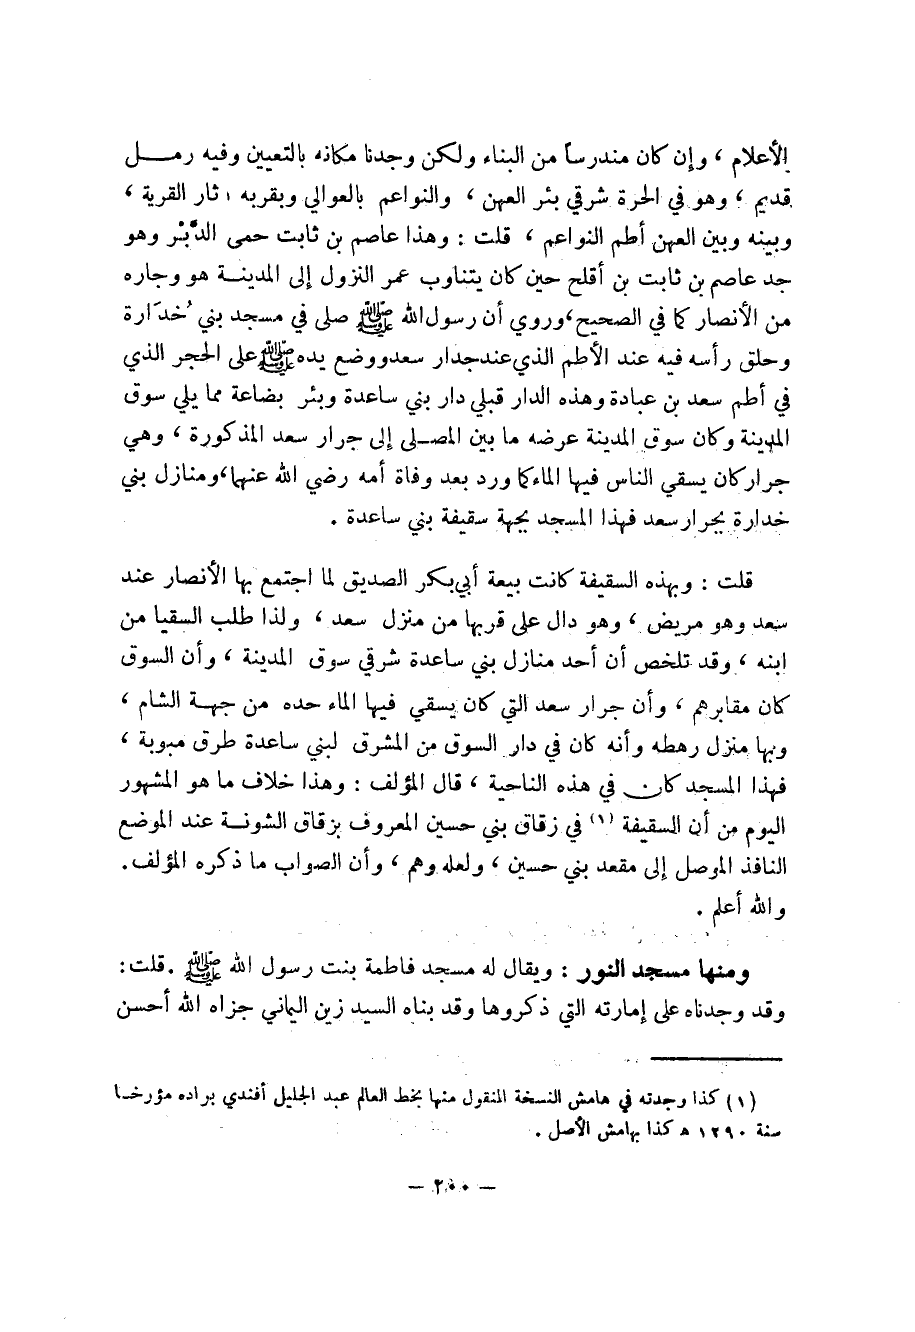 الأعلام ، وإن كان مندرساً من البناء ولكن وجدنا مكانه بالتعيين وفيه رمل
قديم ؛ وهو في الحرة شرقي بئر العهن ، والنواعم بالعوالي وبقربه اثار القرية ،
وبينه وبين العهن أطم النواعم ، قلت : وهذا عاصم بن ثابت حمى الدَّبْر وهو
جد عاصم بن ثابت بن أقلح حين كان يتناوب عمر النزول إلى المدينة هو وجاره
من الأنصار كما في الصحيح،وروي أن رسول الله ﷺ صلى في مسجد بني خُدَارة
وحلق رأسه فيه عند الأطم الذي عند جدار سعد ووضع يده ﷺ على الحجر الذي
في أطم سعد بن عبادة وهذه الدار قبلي دار بني ساعدة وبئر بضاعة مما يلي سوق
المدينة وكان سوق المدينة عرضه ما بين المصلى إلى جرار سعد المذكورة ، وهي
جرار كان يسقي الناس فيها الماء كما ورد بعد وفاة أمه رضي الله عنها،ومنازل بني
خدارة بجرار سعد فهذا المسجد بجهة سقيفة بني ساعدة .
قلت : وبهذه السقيفة كانت بيعة أبي بكر الصديق لما اجتمع بها الأنصار عند
سعد وهو مريض ، وهو دال على قربها من منزل سعد ، ولذا طلب السقيا من
ابنه ، وقد تلخص أن أحد منازل بني ساعدة شرقي سوق المدينة ، وأن السوق
كان مقابرهم ، وأن جرار سعد التي كان يسقي فيها الماء حده من جهة الشام ،
وبها منزل رهطه وأنه كان في دار السوق من المشرق لبني ساعدة طرق مبوبة ،
فهذا المسجد كان في هذه الناحية ، قال المؤلف : وهذا خلاف ما هو المشهور
اليوم من أن السقيفة (١) في زقاق بني حسين المعروف بزقاق الشونة عند الموضع
النافذ الموصل إلى مقعد بني حسين ، ولعله وهم ، وأن الصواب ما ذكره المؤلف.
والله أعلم .
ومنها مسجد النور : ويقال له مسجد فاطمة بنت رسول الله ﷺ .قلت:
وقد وجدناه على إمارته التي ذكروها وقد بناه السيد زين اليماني جزاه الله أحسن
(١) كذا وجدته في هامش النسخة المنقول منها بخط العالم عبد الجليل أفندي براده مؤرخا
سنة ١٢٩٠ ه كذا بهامش الأصل .
— ٢٠٠ —